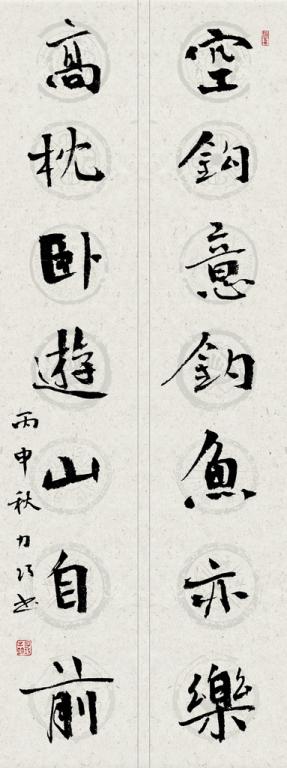 空鉤意釣魚亦樂
高枕卧遊山自前
丙申秋